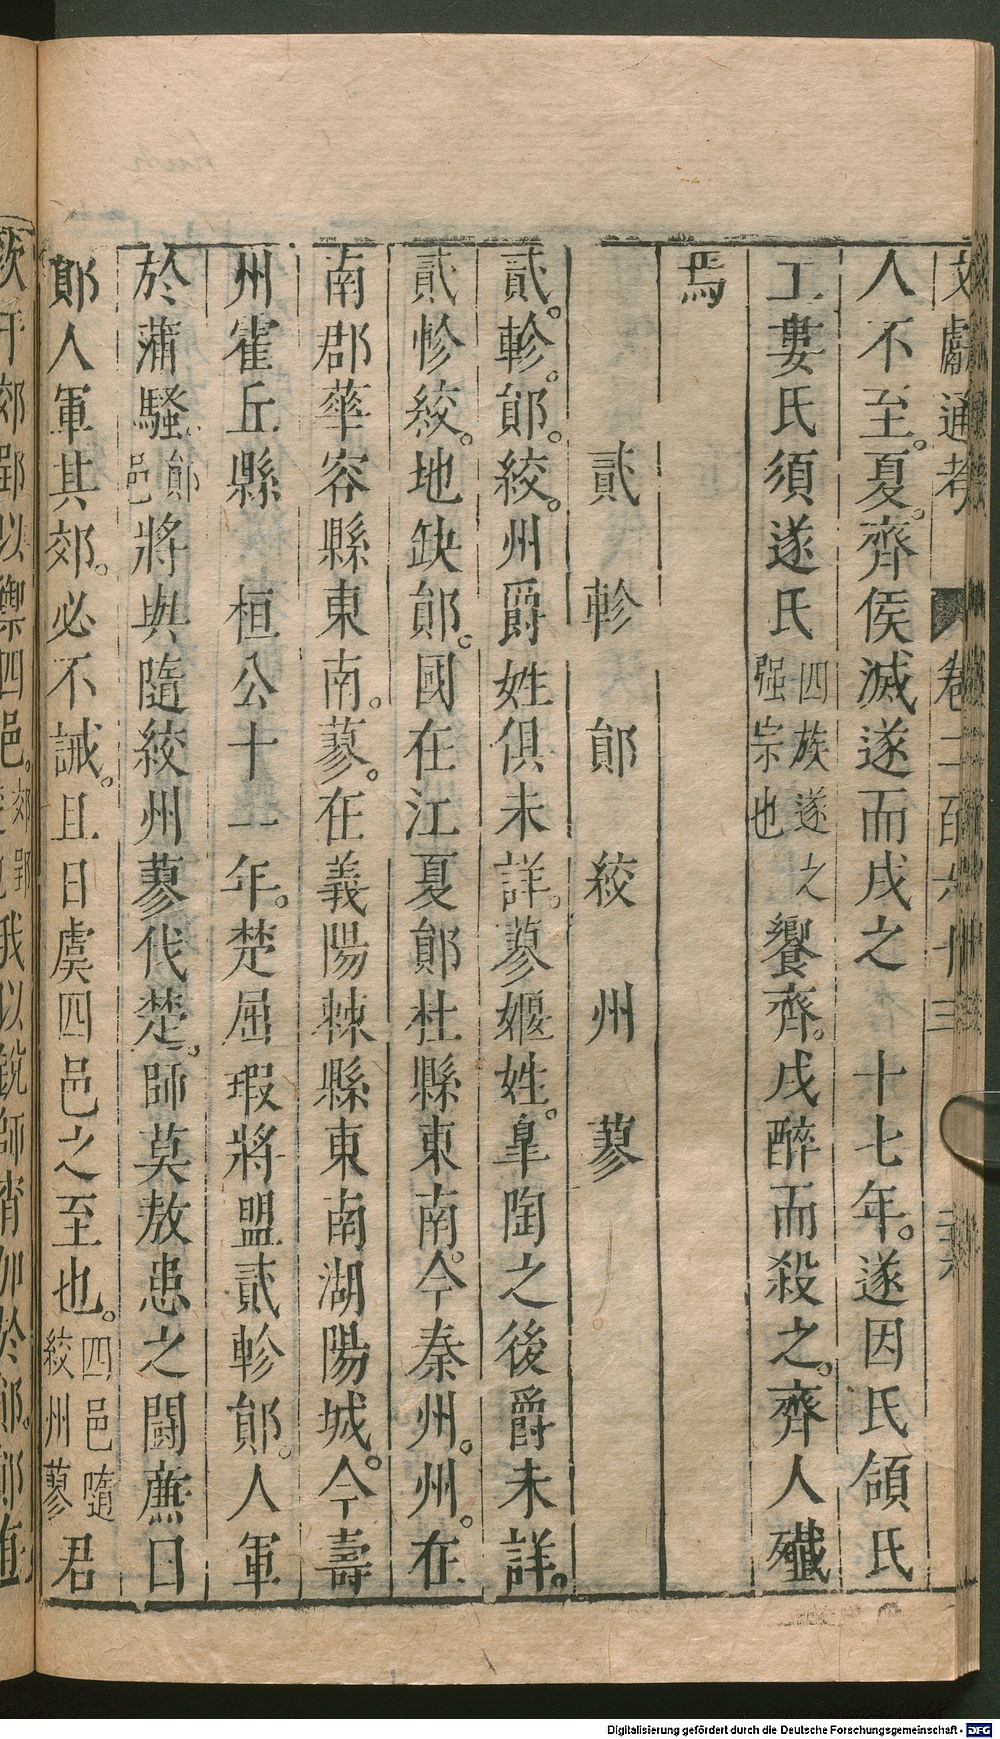 文獻通考 卷二百六十三
人不至。夏。齊侯滅遂而戍之 十七年。遂因氏頜氏
工婁氏須遂氏四族遂之强宗也饗齊。戍醉而殺之。齊人殱
焉
貳 軫 鄖 絞 州 蓼
貳。軫。鄖。絞。州爵姓俱未詳。蓼姬姓。臯陶之後爵未詳。
貳㣀絞。地缺鄖。國在江夏鄖杜縣東南。今秦州。州。在
南郡華容縣東南。蓼。在義陽棘縣東南湖陽城。今壽
州霍丘縣 桓公十一年。楚屈瑕將盟貳軫鄖。人軍
於蒲騷。鄖邑將與隨絞州蓼伐楚。師莫敖患之鬬廉曰
鄖人軍其郊。必不誡。且日虞四邑之至也。四邑隨絞州蓼君
次于郊郢以禦四邑。郊郢楚地我以銳師宵加於鄖。鄖
Digitalisierung gefördert durch die Deutsche Forschungsgemeinschaft - DFG